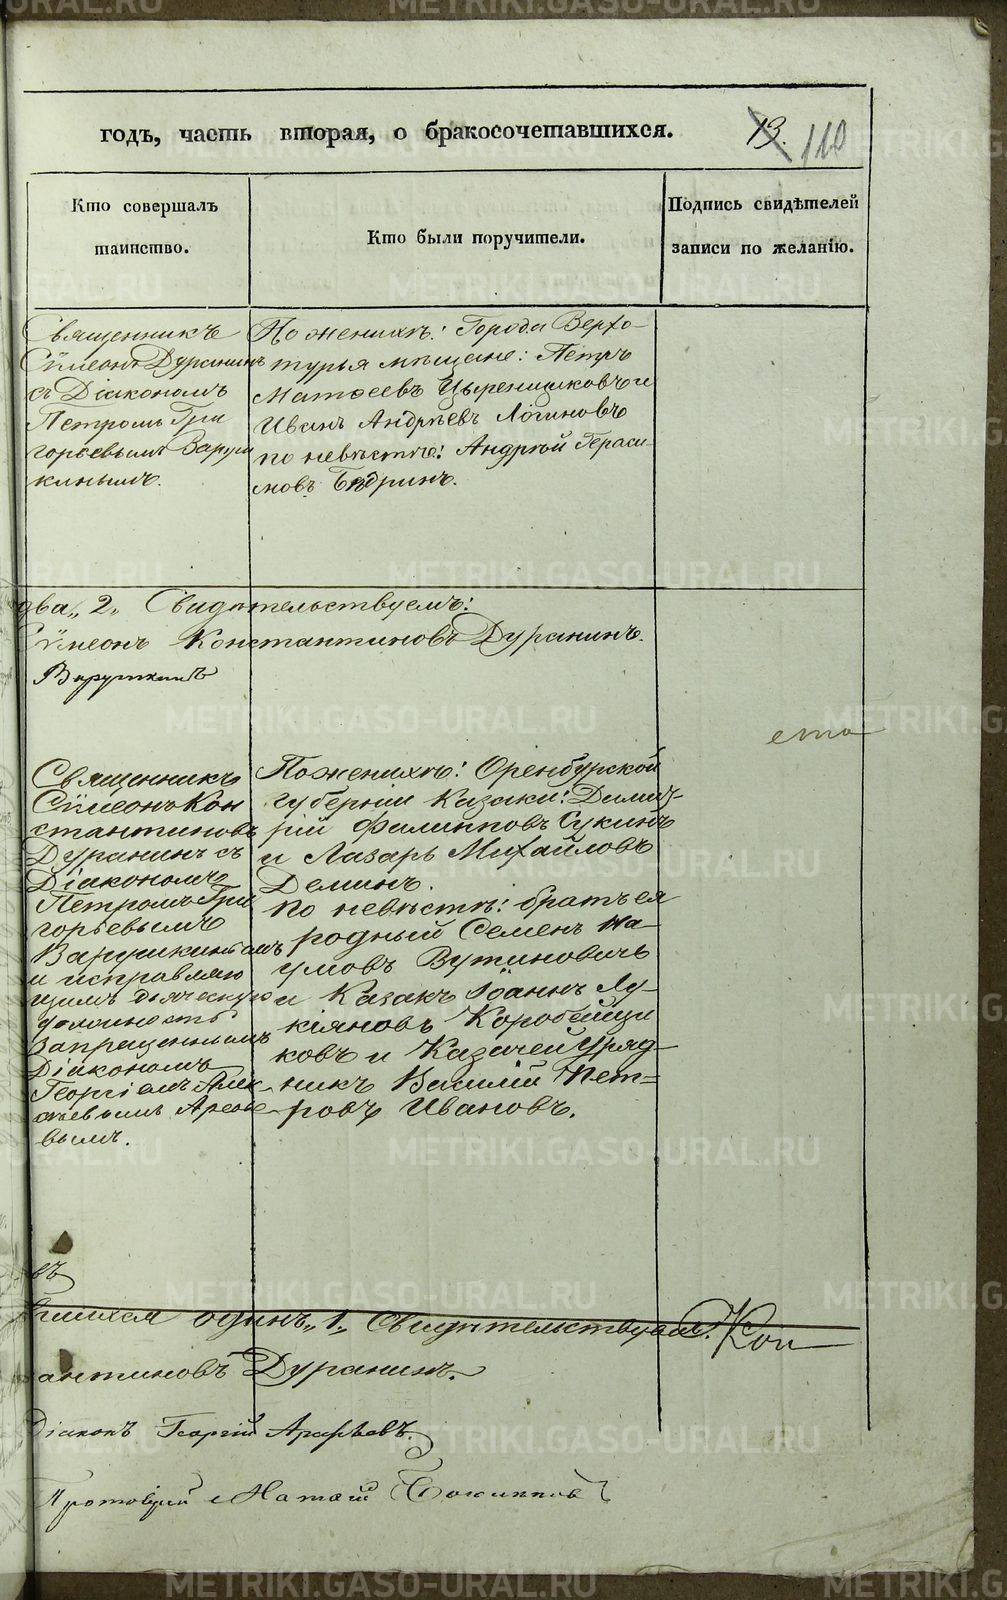 годъ, часть вторая, о бракосочетавшихся.
13. 110
Кто совершалъ
таинство.
Кто были поручители.
Подпись свидѣтелей
записи по желанію.
Священникъ
Сѵмеонъ Дуранинъ
съ Діакономъ
Петромъ Гри
горьевымъ Варуш
кинымъ.
По женихѣ: Города Верхо-
турья мѣщане: Петръ
Матѳеевъ и
Иванъ Андрѣевъ Логиновъ
по невѣстѣ: Андрѣй Гераси
мовъ Бедринъ.
два „2„ Свидѣтельствуемъ:
Сѵмеонъ Константиновъ Дуранинъ.
Варушкинъ
Священникъ
Сѵмеонъ Кон
стантиновъ
Дуранинъ съ
Діакономъ
Петромъ Гри
горьевымъ
Варушкинымъ
и исправляю
щимъ дьяческую
должность
Запрещеннымъ
Діакономъ
Георгіемъ Алек
сѣевымъ Арефье
вымъ.
По женихѣ: Оренбурской
губерніи Казаки: Димит-
рій Филипповъ Сукинъ
и Лазарь Михайловъ
Деминъ.
по невѣстѣ: братъ ея
родный Семенъ На
умовъ Вутиновичь
и Казакъ Іоаннъ Лу-
кіяновъ Коробейщи
ковъ и Казачей Уряд-
никъ Василій Пет=
ровъ Ивановъ.
въ
шихся одинъ „1„ Свидѣтельствуемъ. Кон
антиновъ Дуранинъ.
Діаконъ Георгій Арефьевъ.
Протоіерей
METRIKI.GASO-URAL.RU